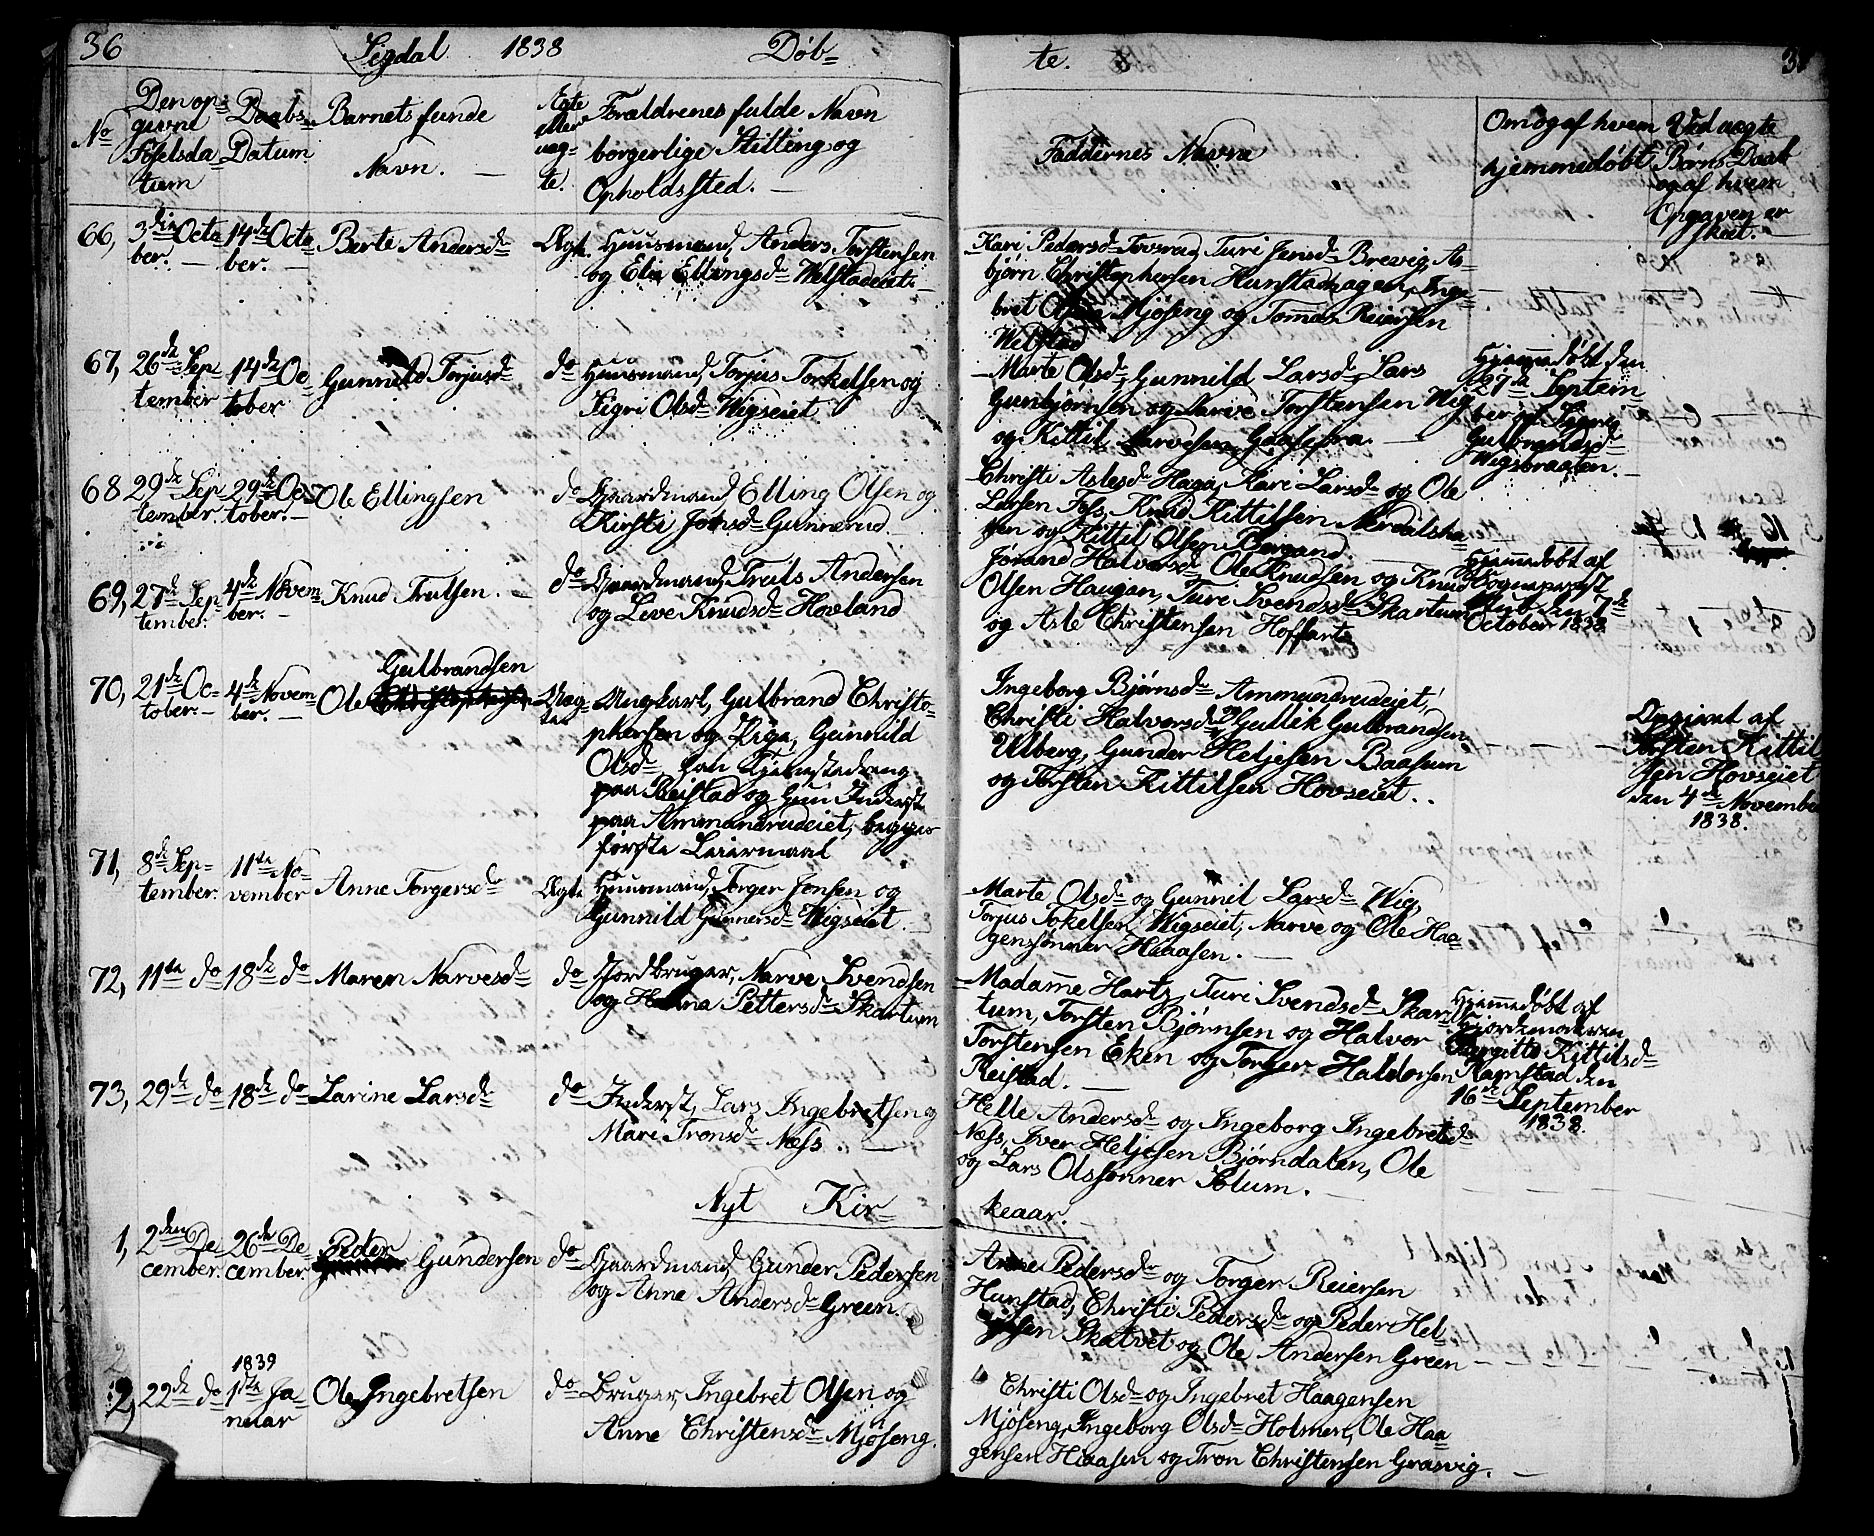 36 Sigdal 1838 Døb=
te.
No
Den op=
givne
Føselsda
tum
Daabs=
Datum
Barnets funde
Navn. —
Ægte
eller
uæg=
te.
Forældrenes fulde Navn
borgerlige Stilling og
Opholdssted. —
Faddernes Navne
Om og af hvem
hjemmedøbt
Ved uægte
Børns Daab
og af hvem
Opgaven er
skeet. —
66, 3die Octo 14de Octo Berte Andersdr Ægte Huusmand, Anders Torstensen
ber. — ber. — og Elie Ellingsdr Welstadeiet. —
Kari Pedersdr Tovsrud, Turi Jensdr Brevig, As=
bjørn Christophersen Hunstadhagen, Inge=
bret Olsen Mjøseng og Tommas Reiersen
Welstad
67, 26de Sep 14de Oc Gunnild Torjusdr do Huusmand, Torjus Torkelsen og
tember tober Sigri Olsdr Wigseiet
Marte Olsdr, Gunnild Larsdr, Lars
Gunbjørnsen og Narve Torstensen Wig
og Kittil Narvesen Gaasefra. —
Hjemmedøbt den
27de Septem
ber af Sigrig
Gulbrandsdr
Wigsbraaten. —
68 29de Sep 29de Oc Ole Ellingsen do Gaardmand Elling Olsen og
tember. tober. — Kirsti Jonsdr Gunnerud. —
Christi Aslesdr Haga, Kari Larsdr og Ole
Larsen Fos, Knud Kittilsen Nerdalsha=
gen og Kittil Olsen Bergand
69, 27de Sep 4de Novem Knud Trulsen. — do Gaardmand, Truls Andersen
tember. ber. — og Live Knudsdr Hovland
Jørand Halvorsdr Ole Knudsen og Knud
Olsen Haugan, Turi Svendsdr Skartum
og Asle Christensen Hoffart
Hjemmedøbt af
Sogneprest
den 7de
October 1838
Gulbrandsen
70, 21de Oc= 4de Novem Ole Uæg= Ungkarl, Gulbrand Christo=
tober. — ber. — te phersen og Pige, Gunnild
Olsdr han Kjennstadeng
paa Reistad og hun Inderst
paa Ammundrudeiet, begges
første Leiermaal
Ingeborg Bjørnsdr Ammundrudeiet,
Christi Halvorsdr og Gullik Gulbrandsen
Ulberg, Gunder Heljesen Baasum
og Torsten Kittilsen Hovseiet. .
Opgivet af
Torsten Kittil
sen Hovseiet
den 4de November
1838.
71, 8de Sep= 11te No= Anne Torgersdr Ægte Huusmand, Torger Jonsen og
tember. vember Gunnild Gunnersdr Wigseiet. —
Marte Olsdr og Gunnil Larsdr Wig,
Torjus Tokelsen Wigseiet, Narve og Ole Haa=
genssønner Haaasen. —
72, 11te do 18de do Maren Narvesdr do Jordbruger, Narve Svendsen
og Helena Pettersdr Skartum
Madamme Hartz, Turi Svendsdr Skar=
tum, Torsten Bjørnsen og Halvor
Torstensen Eken og Torger Haldorsen
Reistad. —
Hjemmedøbt af
Gjordemoderen
Bergitte Kittilsdr
Ramstad den
16de September
1838.
73, 29de do 18de do Larine Larsdr do Inderst, Lars Ingebretsen og
Mari Tronsdr Næss. —
Helle Andersdr og Ingeborg Ingebretsdr
Næss, Iver Heljesen Bjørndalen, Ole
og Lars Olssønner Solum. —
Nyt Kir=
keaar.
1, 2den De 26de De Peder Gundersen do Gaardmand, Gunder Pedersen
cember. cember. og Anne Andersdr Green. —
Anne Pedersdr og Torger Reiersen
Hunstad, Christi Pedersdr og Peder Hel=
jesen Skatvet og Ole Andersen Green
1839
2, 22de do 1ste Ja Ole Ingebretsen do Bruger, Ingebret Olsen og
nuar Anne Christensdr Mjøseng.
Christi Olsdr og Ingebret Haagensen
Mjøseng, Ingeborg Olsdr Holmen, Ole Haa
gensen Haaasen og Tron Christensen Grasvig. —